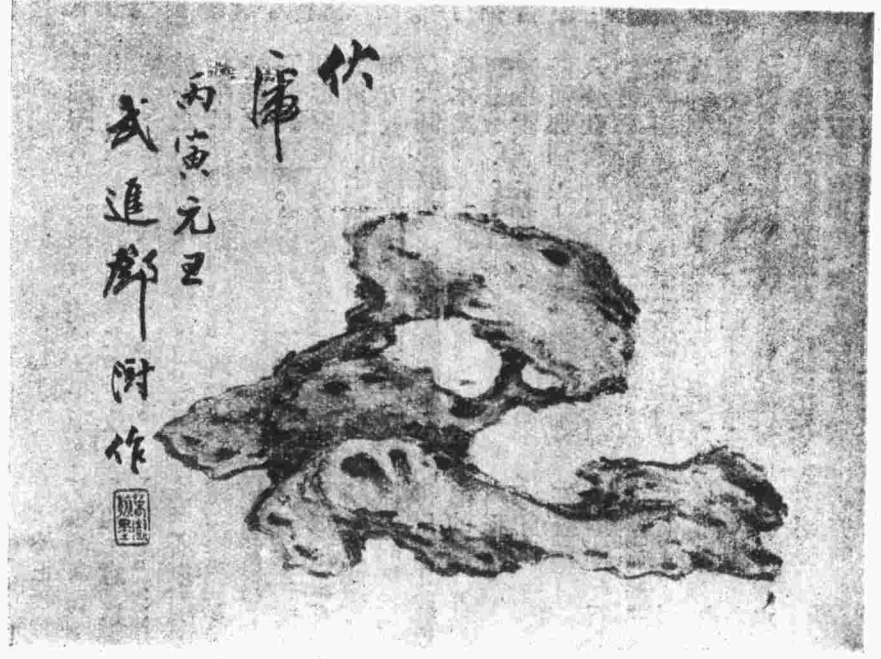 伏
虎
丙寅元旦
武進鄧澍作